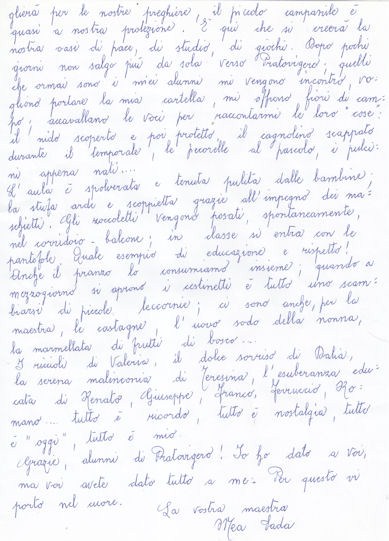 glierà per le nostre preghiere, il piccolo campanile è
quasi a nostra protezione. È qui che si creerà la
nostra oasi di pace, di studio, di giochi. Dopo pochi
giorni non salgo più da sola verso Pratovigero; quelli
che ormai sono i miei alunni mi vengono incontro, vo-
gliono portare la mia cartella, mi offrono fiori di cam-
po; accavallano le voci per raccontarmi le loro "cose":
il nido scoperto e poi protetto, il cagnolino scappato
durante il temporale, le pecorelle al pascolo, i pulci-
ni appena nati....
L'aula è spolverata e tenuta pulita dalle bambine;
la stufa arde e scoppietta grazie all'impegno dei ma-
schietti. Gli zoccoletti vengono posati, spontaneamente,
nel corridoio-balcone; in classe si entra con le
pantofole. Quale esempio di educazione e rispetto!
Anche il pranzo lo consumiamo insieme; quando a
mezzogiorno si aprono i cestinetti è tutto uno scam-
biarsi di piccole leccornie; ci sono anche, per la
maestra, le castagne, l'uovo sodo della nonna,
la marmellata di frutti di bosco...
I riccioli di Valeria, il dolce sorriso di Dalia,
la serena malinconia di Teresina, l'esuberanza edu-
cata di Renato, Giuseppe, Franco, Ferruccio, Ro-
mano... tutto è ricordo, tutto è nostalgia, tutto
è "oggi", tutto è mio.
Grazie, alunni di Pratovigero! Io ho dato a voi,
ma voi avete dato tutto a me. Per questo vi
porto nel cuore.
La vostra maestra
Mea Tada